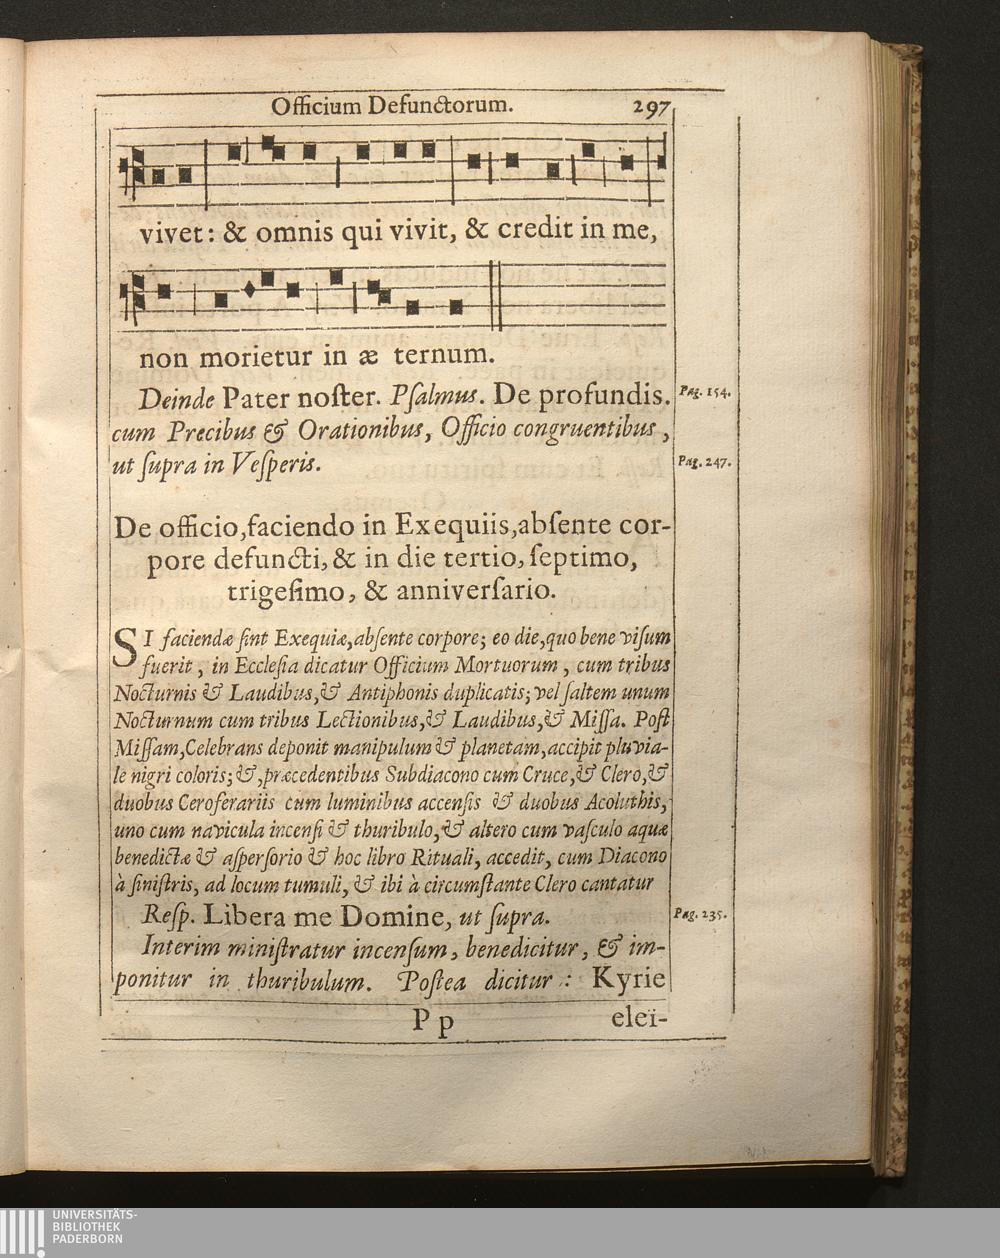 Officium Defunctorum. 297
vivet: & omnis qui vivit, & credit in me,
non morietur in æ ternum.
Deinde Pater noſter. Pſalmus. De profundis. Pag. 154.
cum Precibus & Orationibus, Officio congruentibus,
ut ſupra in Veſperis. Pag. 247.
De officio, faciendo in Exequiis, abſente cor-
pore defuncti, & in die tertio, ſeptimo,
trigeſimo, & anniverſario.
SI faciendæ ſint Exequiæ, abſente corpore; eo die, quo bene viſum
fuerit, in Eccleſia dicatur Officium Mortuorum, cum tribus
Nocturnis & Laudibus, & Antiphonis duplicatis; vel ſaltem unum
Nocturnum cum tribus Lectionibus, & Laudibus, & Miſſa. Poſt
Miſſam, Celebrans deponit manipulum & planetam, accipit pluvia-
le nigri coloris; &, præcedentibus Subdiacono cum Cruce, & Clero, &
duobus Ceroferariis cum luminibus accenſis & duobus Acoluthis,
uno cum navicula incenſi & thuribulo, & altero cum vaſculo aquæ
benedictæ & aſperſorio & hoc libro Rituali, accedit, cum Diacono
à ſiniſtris, ad locum tumuli, & ibi à circumſtante Clero cantatur
Reſp. Libera me Domine, ut ſupra. Pag. 235.
Interim miniſtratur incenſum, benedicitur, & im-
ponitur in thuribulum. Poſtea dicitur: Kyrie
P p elei-
UNIVERSITÄTS-
BIBLIOTHEK
PADERBORN